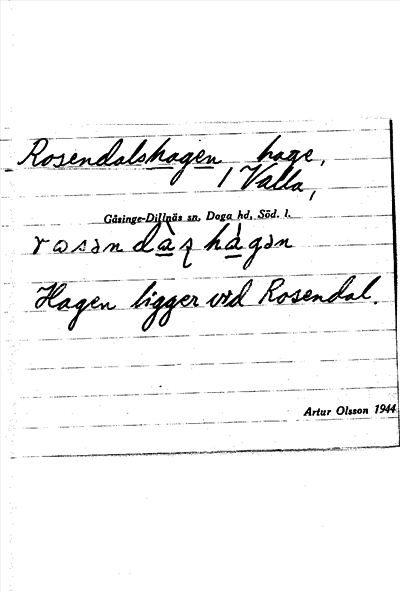 Rosendalshagen hage,
/ Valla,
Gåsinge-Dillnäs sn, Daga hd, Söd. l.
Hagen ligger vid Rosendal.
Artur Olsson 1944